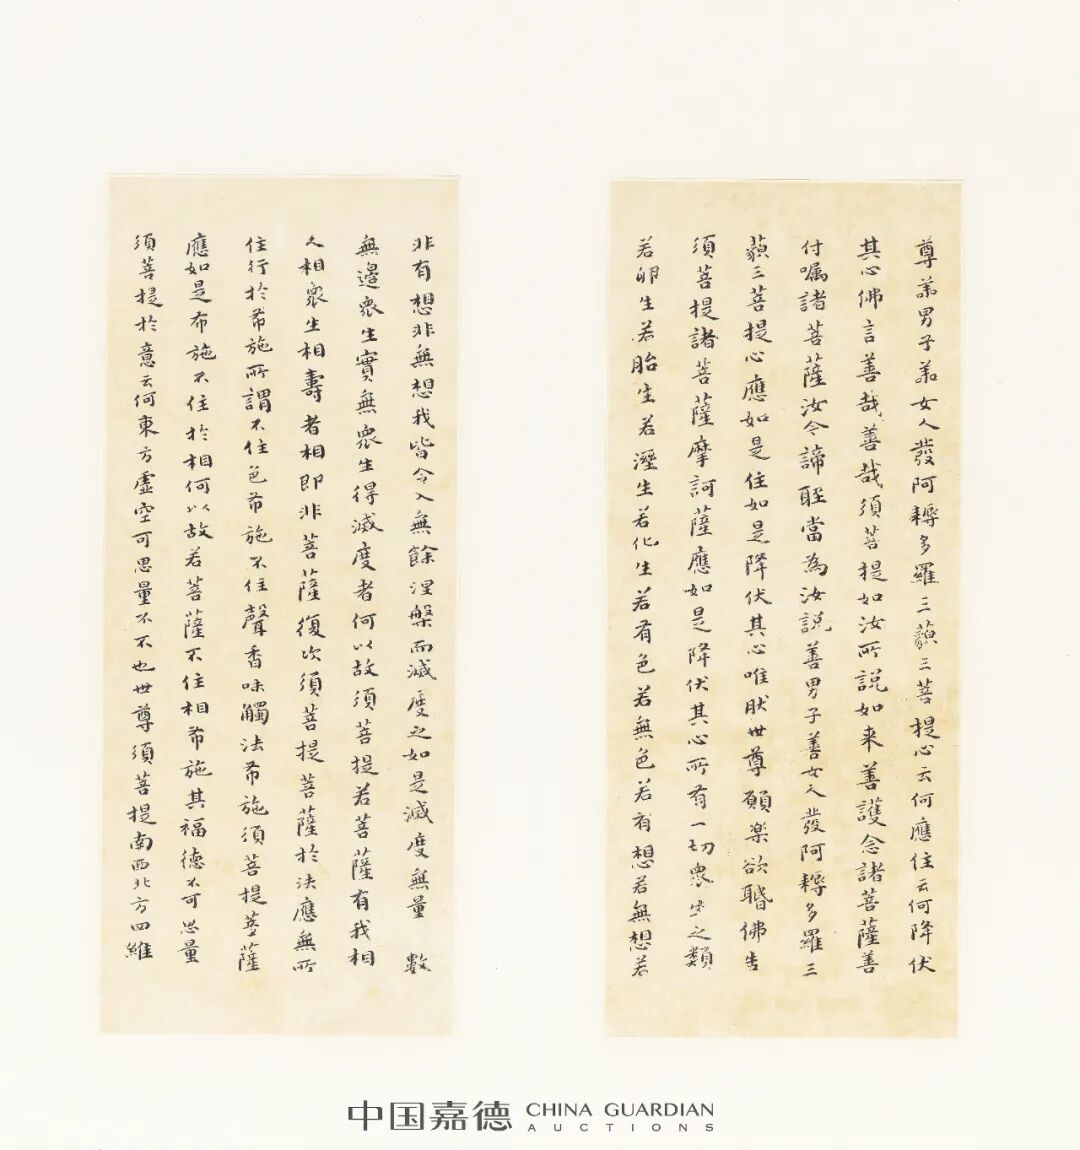 尊善男子善女人發阿耨多羅三藐三菩提心云何應住云何降伏
其心佛言善哉善哉須菩提如汝所說如来善護念諸菩薩善
付囑諸菩薩汝今諦聽當為汝說善男子善女人發阿耨多羅三
藐三菩提心應如是住如是降伏其心唯然世尊願樂欲聞佛告
須菩提諸菩薩摩訶薩應如是降伏其心所有一切衆生之類
若卵生若胎生若溼生若化生若有色若無色若有想若無想若
非有想非無想我皆令入無餘涅槃而滅度之如是滅度無量 數
無邊衆生實無衆生得滅度者何以故須菩提若菩薩有我相
人相衆生相壽者相即非菩薩復次須菩提菩薩於法應無所
住行於布施所謂不住色布施不住聲香味觸法布施須菩提菩薩
應如是布施不住於相何以故若菩薩不住相布施其福德不可思量
須菩提於意云何東方虛空可思量不不也世尊須菩提南西北方四維
中国嘉德 CHINA GUARDIAN
AUCTIONS